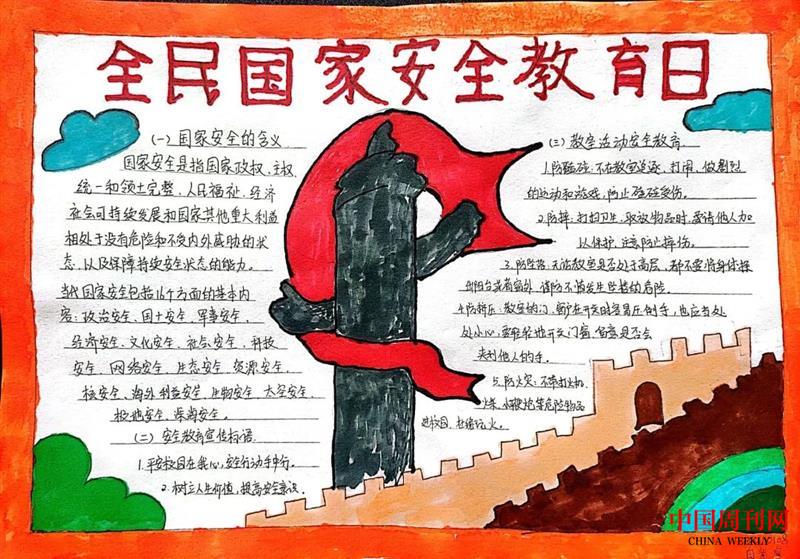 全民国家安全教育日
(一) 国家安全的含义
国家安全是指国家政权、主权
统一和领土完整、人民福祉、经济
社会可持续发展和国家其他重大利益
相对于没有危险和不受内外威胁的状
态，以及保障持续安全状态的能力。
当代国家安全包括16个方面的基本内
容：政治安全、国土安全、军事安全、
经济安全、文化安全、社会安全、科技
安全、网络安全、生态安全、资源安全、
核安全、海外利益安全、生物安全、太空安全、
极地安全、深海安全。
(二) 安全教育宣传标语
1.平安校园在我心，安全行动手牵行。
2.树立人生价值，提高安全意识。
(三) 教室活动安全教育
1.防磕碰：不在教室追逐、打闹，做剧烈
的运动和游戏，防止磕碰受伤。
2.防摔：打扫卫生，取放物品时，要请他人加
以保护，注意防止摔伤。
3.防坠落：无论教室是否处于高层，都不要将身体探
出阳台或者窗外，谨防不慎发生坠楼的危险。
4.防挤压：教室的门、窗户在开关时容易压倒手，也应当处
处小心，要轻轻地开关门窗，留意是否会
夹到他人的手。
5.防火灾：不带打火机、
烟、小鞭炮等危险物品
进校园，杜绝玩火。
中国周刊网
CHINA WEEKLY